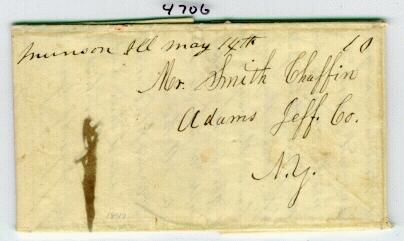 4706
Munson Ill May 14th 10
Mr. Smith Chaffin
Adams Jeff. Co.
N.Y.